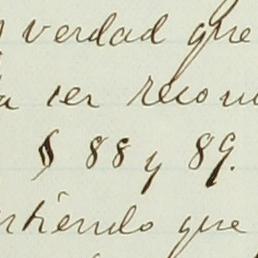 verdad que
ser recono
$ 88 y 89.
rtiendo que